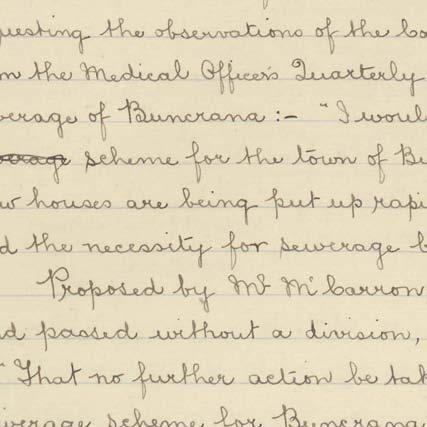 questing the observations of the Co
m the Medical Officer's Quarterly
erage of Buncrana :- "I woul
scheme for the town of Bu
w houses are being put up rapi
d the necessity for sewerage b
Proposed by Mr McCarron
d passed without a division,
"That no further action be tak
werage scheme for Buncrana